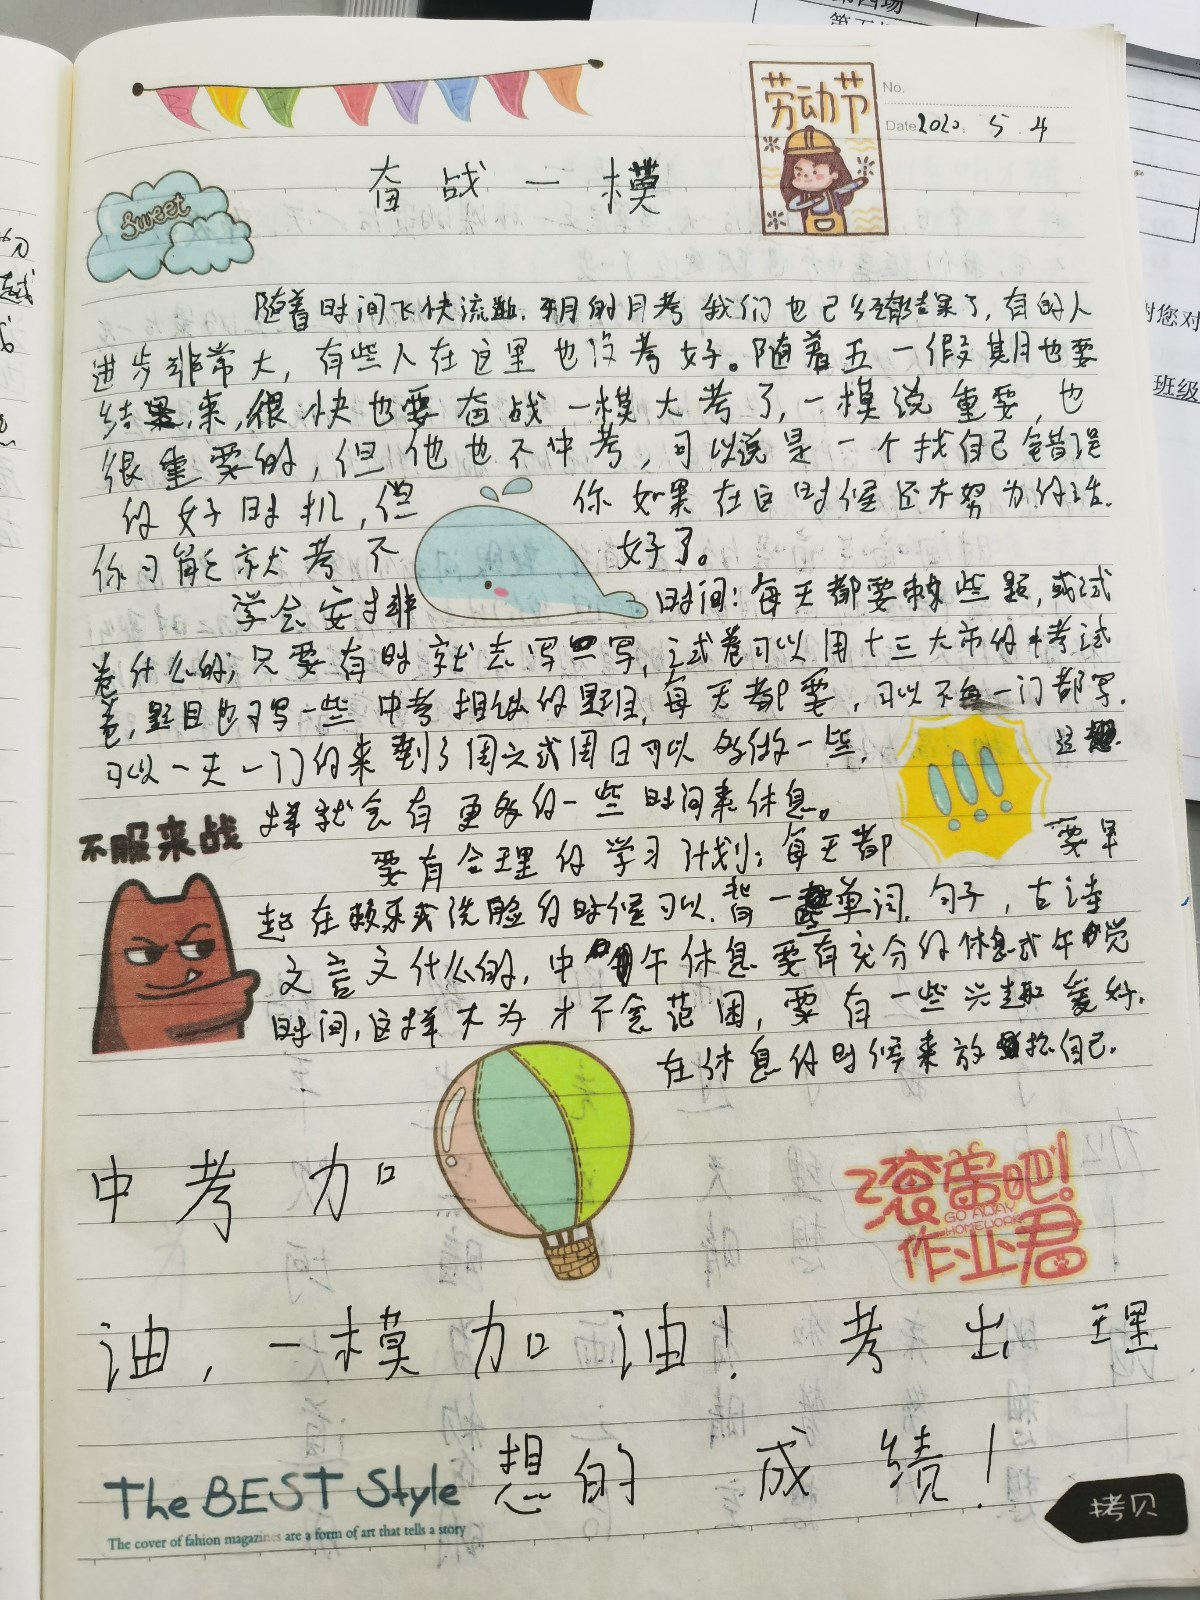 第四场
劳动节
No.
Date 2020. 5. 4
奋战一模
Sweet
随着时间飞快流逝.　月的月考我们也已经结果了,有的人
进步非常大,有些人在这里也没考好。随着五一假期也要
结果,来,很快也要奋战一模大考了,一模说重要,也
很重要的,但他也不中考,可以说是一个找自己错误
的好时机,但你如果在这时候还不努力的话.
你可能就考不好了。
学会安排时间:每天都要刷些题,或试
卷什么的;只要有时就去写写,试卷可以用十三大市的中考试
卷,题目也可写一些中考相似的题目,每天都要,可以不一门都写.
可以一天一门的来到了周六或周日可以多做一些.　这
样就会有更多的一些时间来休息。
不服来战
要有合理的学习计划:每天都要早
起在刷牙或洗脸的时候可以.背一单词.句子,古诗
文言文什么的.中午休息要有充分的休息或午觉
时间,这样大为才不会范困,要有一些兴趣爱好.
在休息的时候来放松自己.
中考加
滚蛋吧!
GO AWAY
HOMEWORK
作业君
油,一模加油!考出理
想的成绩!
The BEST Style
The cover of fahion magazines are a form of art that tells a story
拷贝
对您对
班级